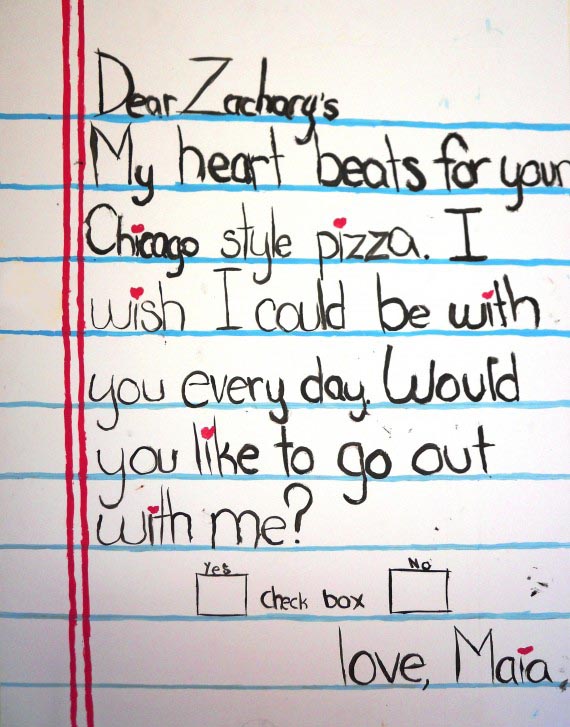 Dear Zachary's
My heart beats for your
Chicago style pizza. I
wish I could be with
you every day. Would
you like to go out
with me?
Yes No
check box
love, Maia,